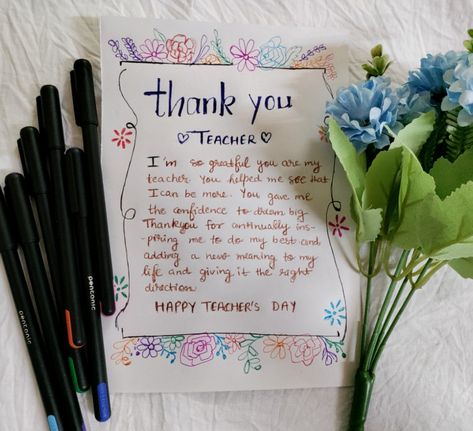 thank you
TEACHER
I'm so greatful you are my
teacher. You helped me see that
I can be more. You gave me
the confidence to dream big
Thankyou for continually ins-
piring me to do my best and
adding a new meaning to my
life and giving it the right
direction
HAPPY TEACHER'S DAY
pentonic
pentonic